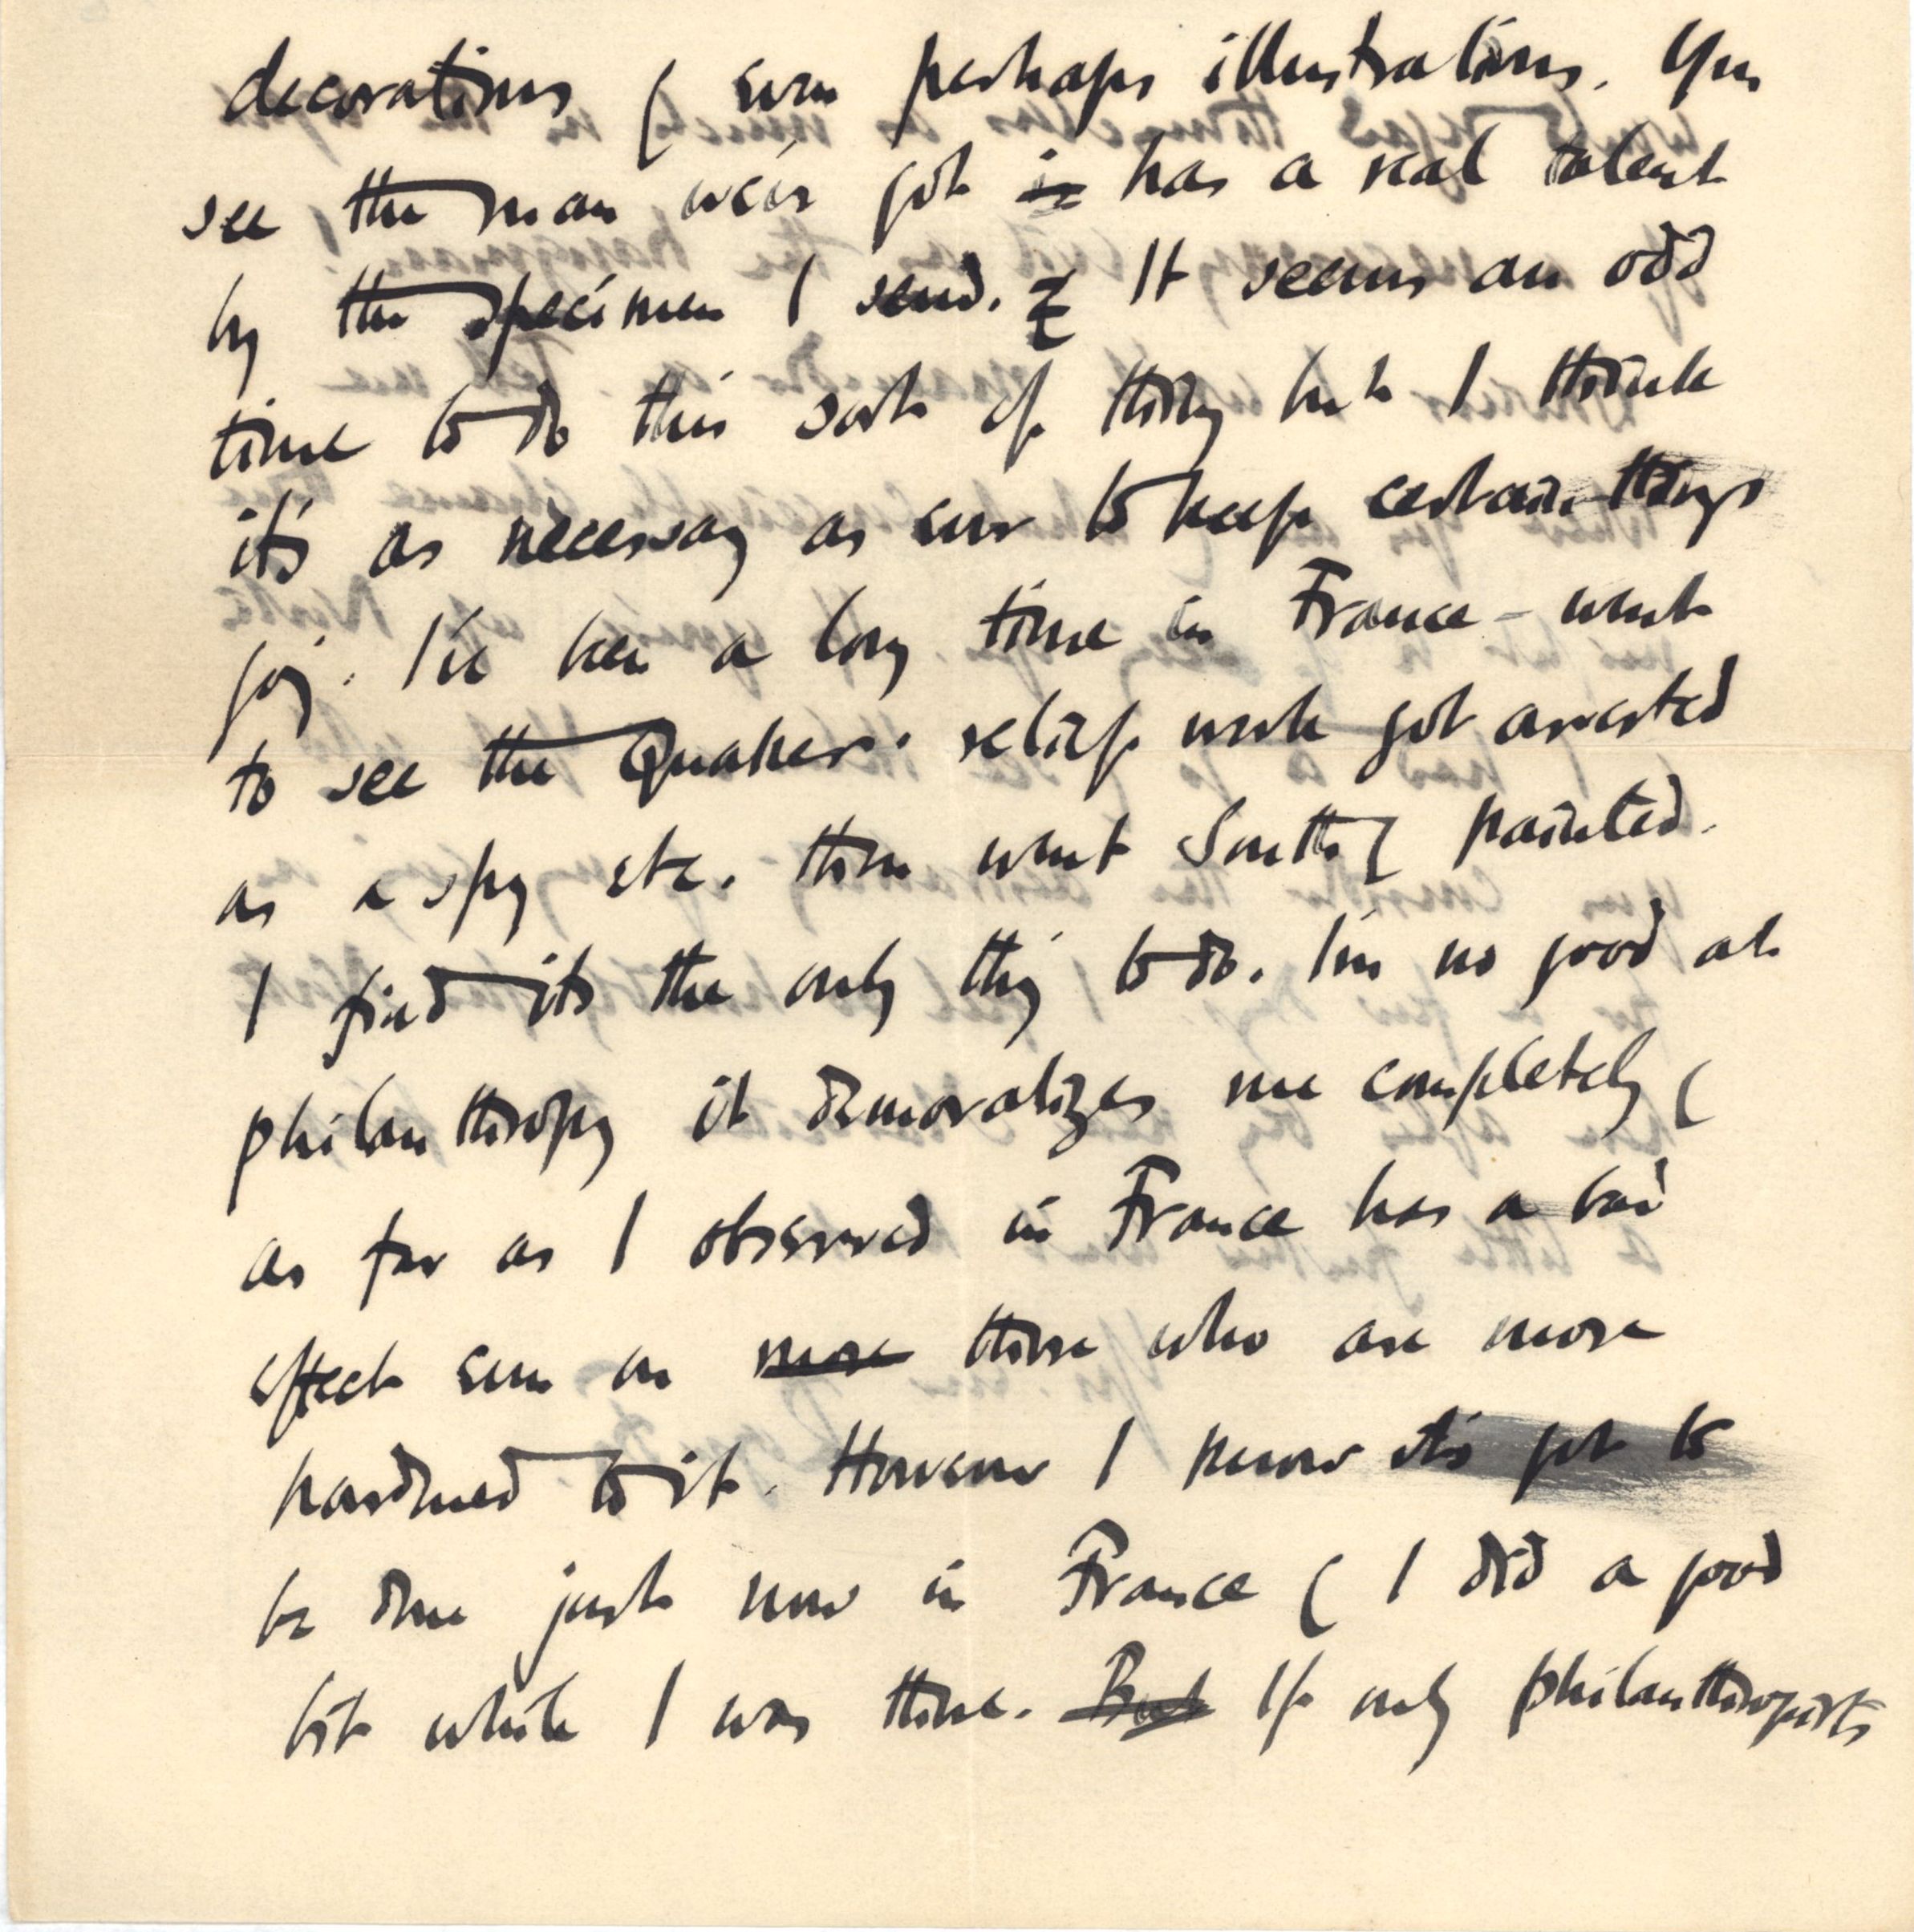 decorations & even perhaps illustrations. You
see the man we've got is has a real talent
by the specimen I send. & It seems an odd
time to do this sort of thing but I think
it's as necessary as ever to keep certain things
going. I've been a long time in France - went
to see the Quakers' relief work got arrested
as a spy etc. then went South & painted.
I find its the only thing to do. I'm no good at
philanthropy it demoralizes me completely &
as far as I observed in France has a bad
effect even on more those who are more
hardened to it. However I know it's got to
be done just now in France & I did a good
bit while I was there. But If only philanthropists